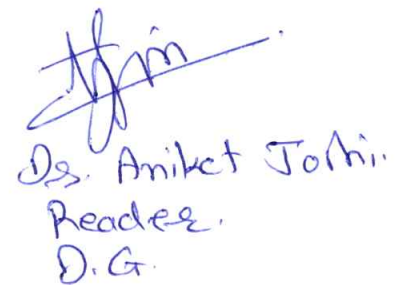 Dr. Aniket Joshi.
Reader.
D.G.